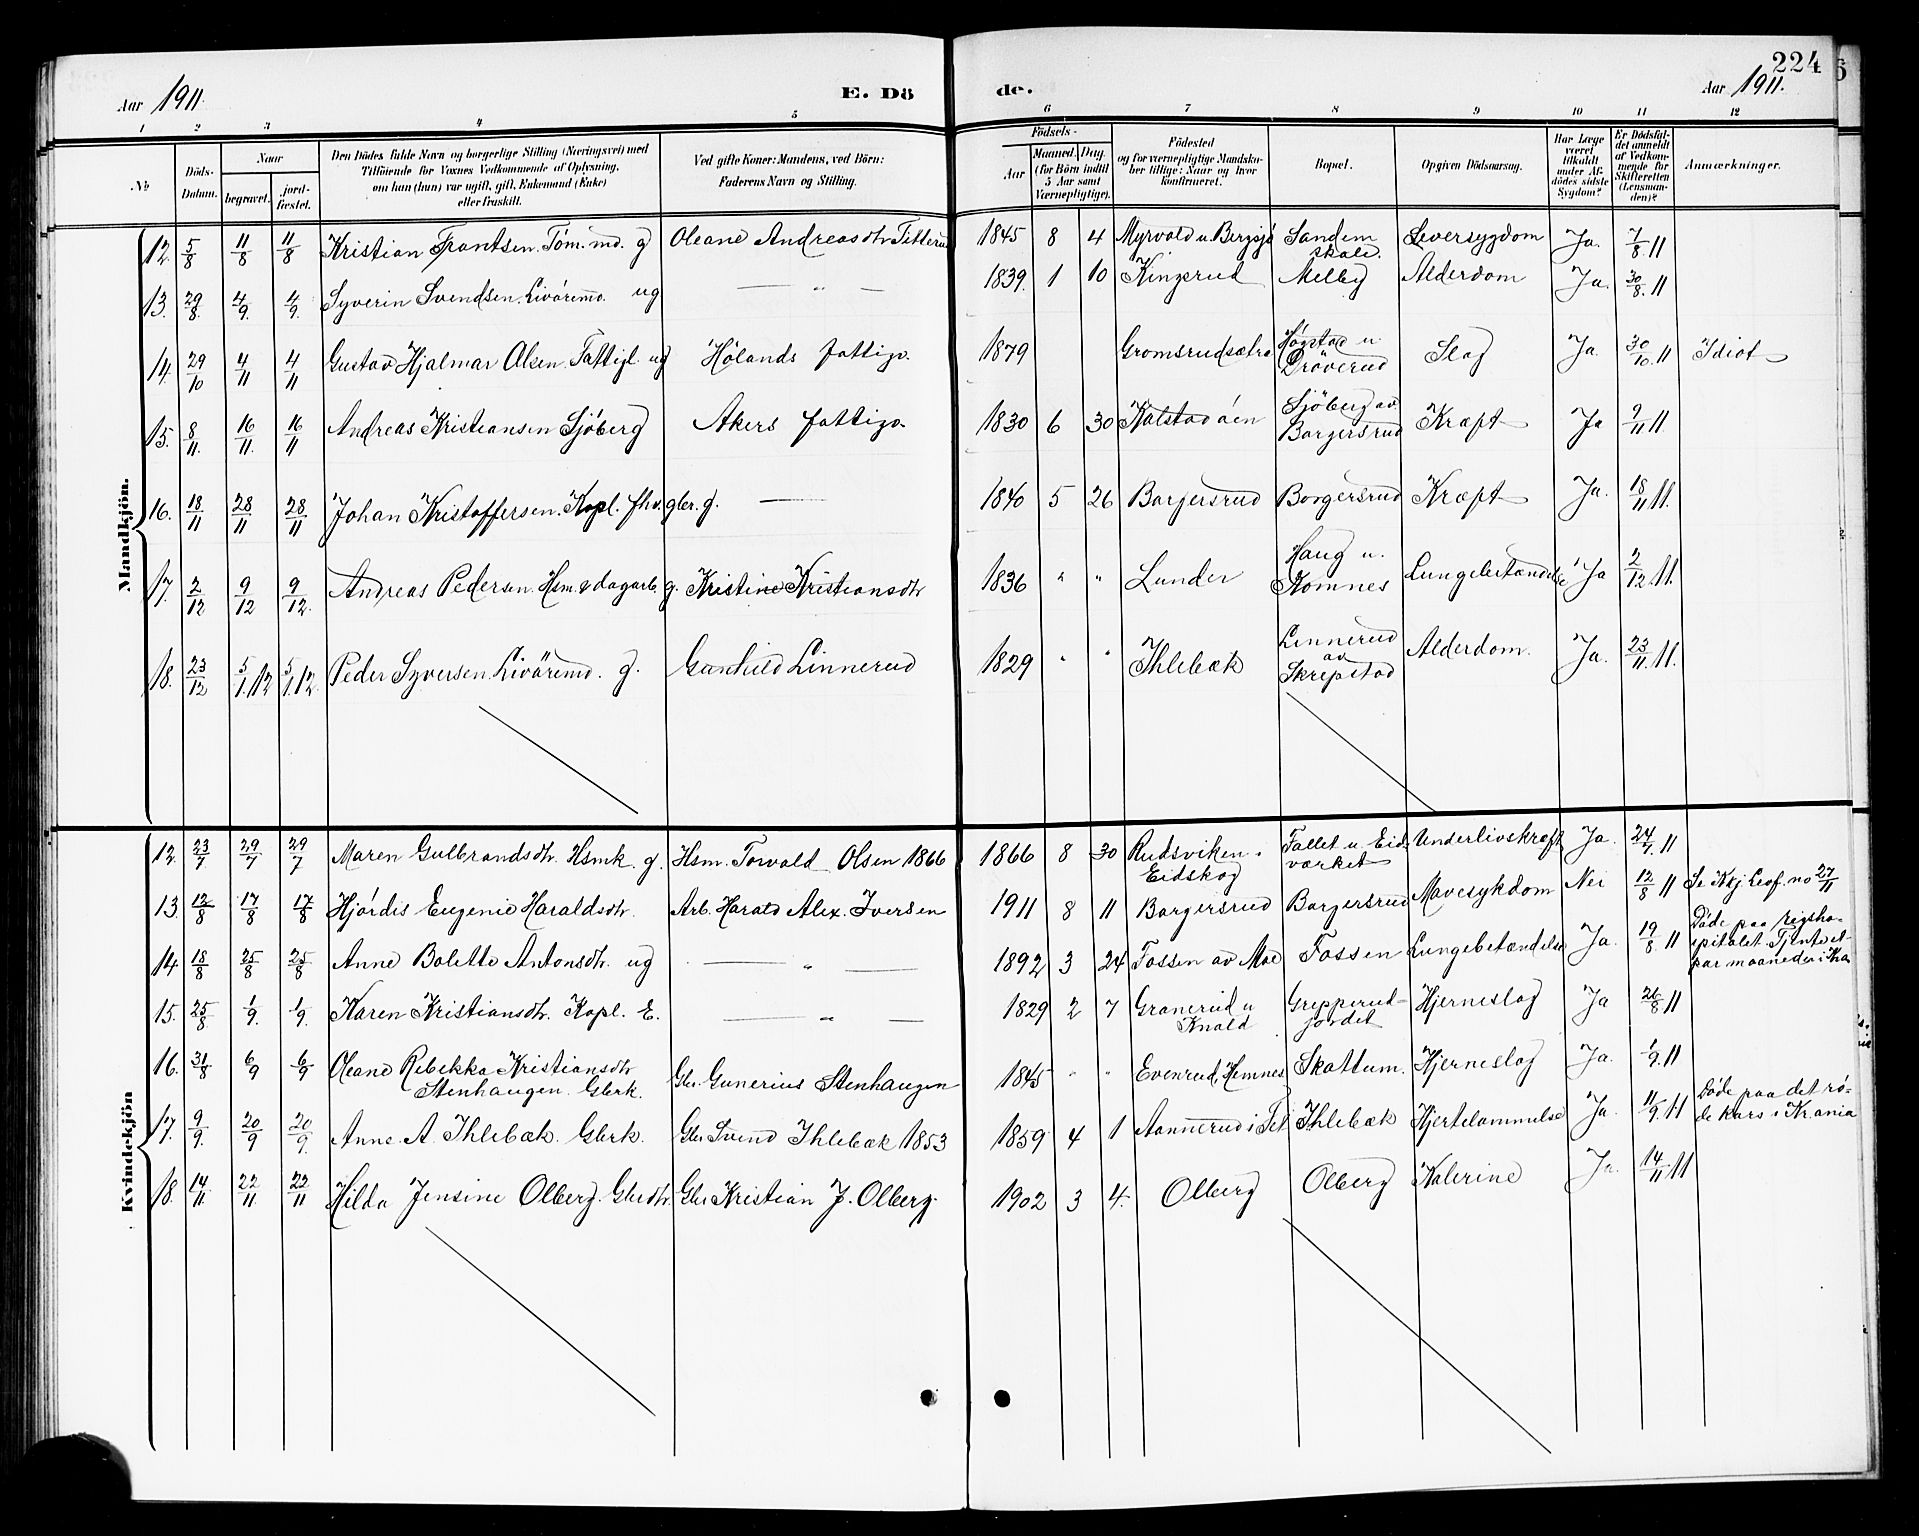 224
Aar 1911.
E. Dö
de.
Aar 1911.
1 2 3 4 5 6 7 8 9 10 11 12
No
Döds-
Datum.
Naar
begravet.
jord-
fæstet.
Den Dödes fulde Navn og borgerlige Stilling (Næringsvei) med
Tilföiende for Voxnes Vedkommende af Oplysning,
om han (hun) var ugift, gift, Enkemand (Enke)
eller fraskilt.
Ved gifte Koner: Mandens, ved Börn:
Faderens Navn og Stilling.
Födsels-
Aar
Maaned. Dag.
(for Börn indtil
5 Aar samt
Værnepligtige).
Födested
og for værnepligtige Mandska-
ber tillige: Naar og hvor
konfirmeret.
Bopæl.
Opgiven Dödsaarsag.
Har Læge
været
tilkaldt
under Af-
dödes sidste
Sygdom?
Er Dödsfal-
det anmeldt
af Vedkom-
mende for
Skifteretten
(Lensman-
den)?
Anmærkninger.
Mandkjön.
12. 5/8 11/8 11/8 Kristian Frantsen. Töm.md. g Oleane Andreasdtr 1845 8 4 Myrvold u. Bergsjö Sandem skole. Leversygdom Ja. 7/8 11
13. 29/8. 4/9. 4/9. Syverin Svendsen. Livöremo. ug — „ — 1839. 1 10 Kingsrud Melby Alderdom Ja. 30/8. 11
14. 29/10 4/11 4/11 Gustav Hjalmar Olsen. Fattigl ug Hölands fattigv. 1879 Gromsrudsætra Høgstad u Dröverud Slag Ja. 30/10. 11 Idiot
15. 8/11. 16/11. 16/11 Andreas Kristiansen Sjöberg Akers fattigv. 1830 6 30 Kalstad Sjöberg av Borgersrud Kræft Ja 9/11 11.
16. 18/11 28/11 28/11 Johan Kristoffersen. Kopl. fhv. gbr. g. — 1840 5 26 Borgersrud Borgersrud Kræft Ja. 18/11 11.
17. 2/12 9/12 9/12. Andreas Pedersen. Hsm. & dagarb. g. Kristine Kristiansdtr 1836 „ „ Lunder Haug u. Komnes Lungebetændelse Ja 2/12 11.
18. 23/12 5/1.12 5/1.12. Peder Syversen. g. Gunhild Linnerud 1829 „ „ Ihlebæk Linnerud av Skrepstad Alderdom. Ja. 23/11. 11.
Kvindekjön
12. 23/7 29/7 29/7 Maren Gulbrandsdtr. Hsmk. g. Hsm. Torvald Olsen 1866 1866 8 30 Rudsviken i Eidskog Fallet u. Eids værket Underlivskræft Ja. 24/7. 11
13. 12/8 17/8 17/8 Hjördis Eugenie Haraldsdtr. Arb. Harald Alex. Iversen 1911 8 11 Borgersrud Borgersrud Mavesykdom Nei 12/8 11 Se no 27/11
14 18/8 25/8 25/8 Anne Bolette Antonsdtr. ug — „ — 1892 3 24 Fossen av Moe Fossen Lungebetændelse Ja. 19/8. 11 Döde paa rigsho-
spitalet. Tjente et
par maaneder i Kra
15. 25/8 1/9. 1/9. Karen Kristiansdtr. Kopl. E. — „ — 1829 2 7 Granerud u Knold Grepperud- jordet Hjerneslag Ja 26/8 11
16. 31/8 6/9 6/9 Oleane Rebekka Kristiansdtr Stenhaugen. Gbrk. Gbr. Gunerius Stenhaugen 1845 „ „ Evenrud, Hemnes Skattum. Hjerneslag Ja. 1/9. 11
17. 9/9. 20/9 20/9. Anne. A. Ihlebæk. Gbrk. Gbr. Svend Ihlebæk 1853 1859 4 1 Aannerud i Ihlebæk Hjertelammelse Ja. 11/9. 11 Döde paa det rö-
de kors i Krania
18. 14/11. 22/11 22/11 Hilda Jensine Olberg. Gbrdtr. Gbr. Kristian J. Olberg. 1902 3 4. Olberg Olberg Kolerine Ja. 14/11 11